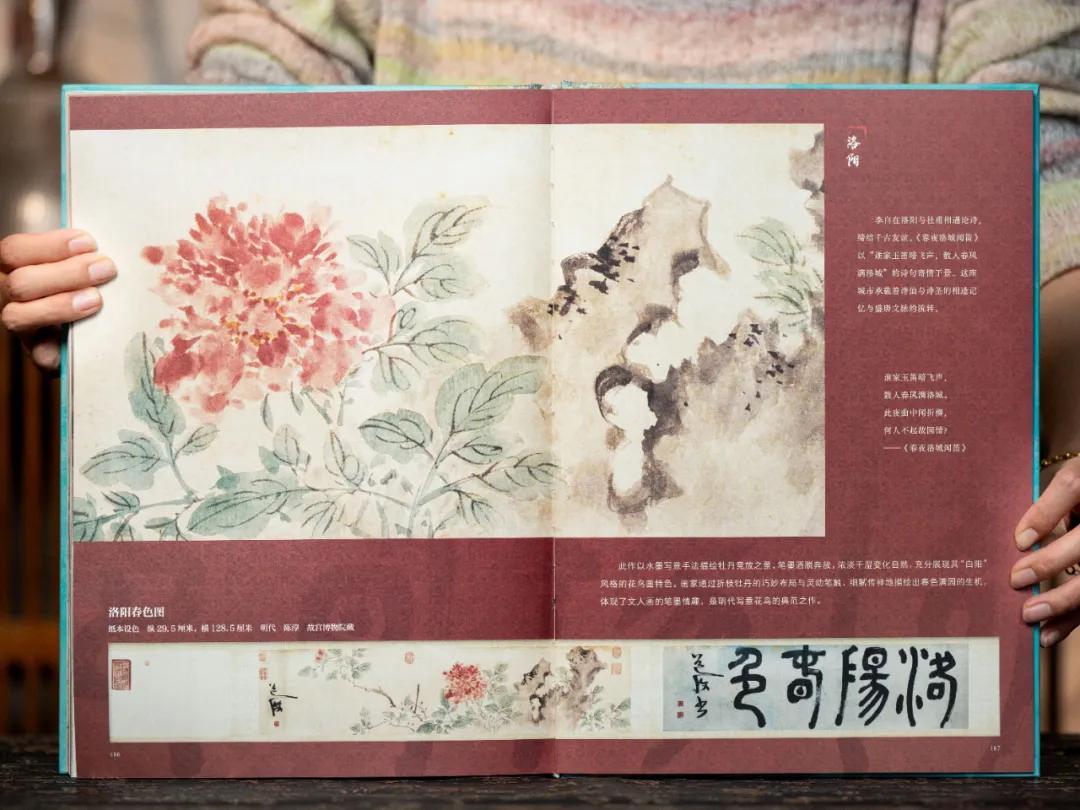 洛阳
李白在洛阳与杜甫相遇论诗,
缔结千古友谊。《春夜洛城闻笛》
以“谁家玉笛暗飞声,散入春风
满洛城”的诗句寄情于景。这座
城市承载着诗仙与诗圣的相遇记
忆与盛唐文脉的流转。
谁家玉笛暗飞声,
散入春风满洛城。
此夜曲中闻折柳,
何人不起故园情?
——《春夜洛城闻笛》
此作以水墨写意手法描绘牡丹竞放之景,笔墨洒脱奔放,浓淡干湿变化自然,充分展现其“白阳”
风格的花鸟画特色。画家透过折枝牡丹的巧妙布局与灵动笔触,细腻传神地描绘出春色满园的生机,
体现了文人画的笔墨情趣,是明代写意花鸟的典范之作。
洛阳春色图
纸本设色 纵 29.5 厘米,横 128.5 厘米 明代 陈淳 故宫博物院藏
洛陽春色
道復書
道復
186
187